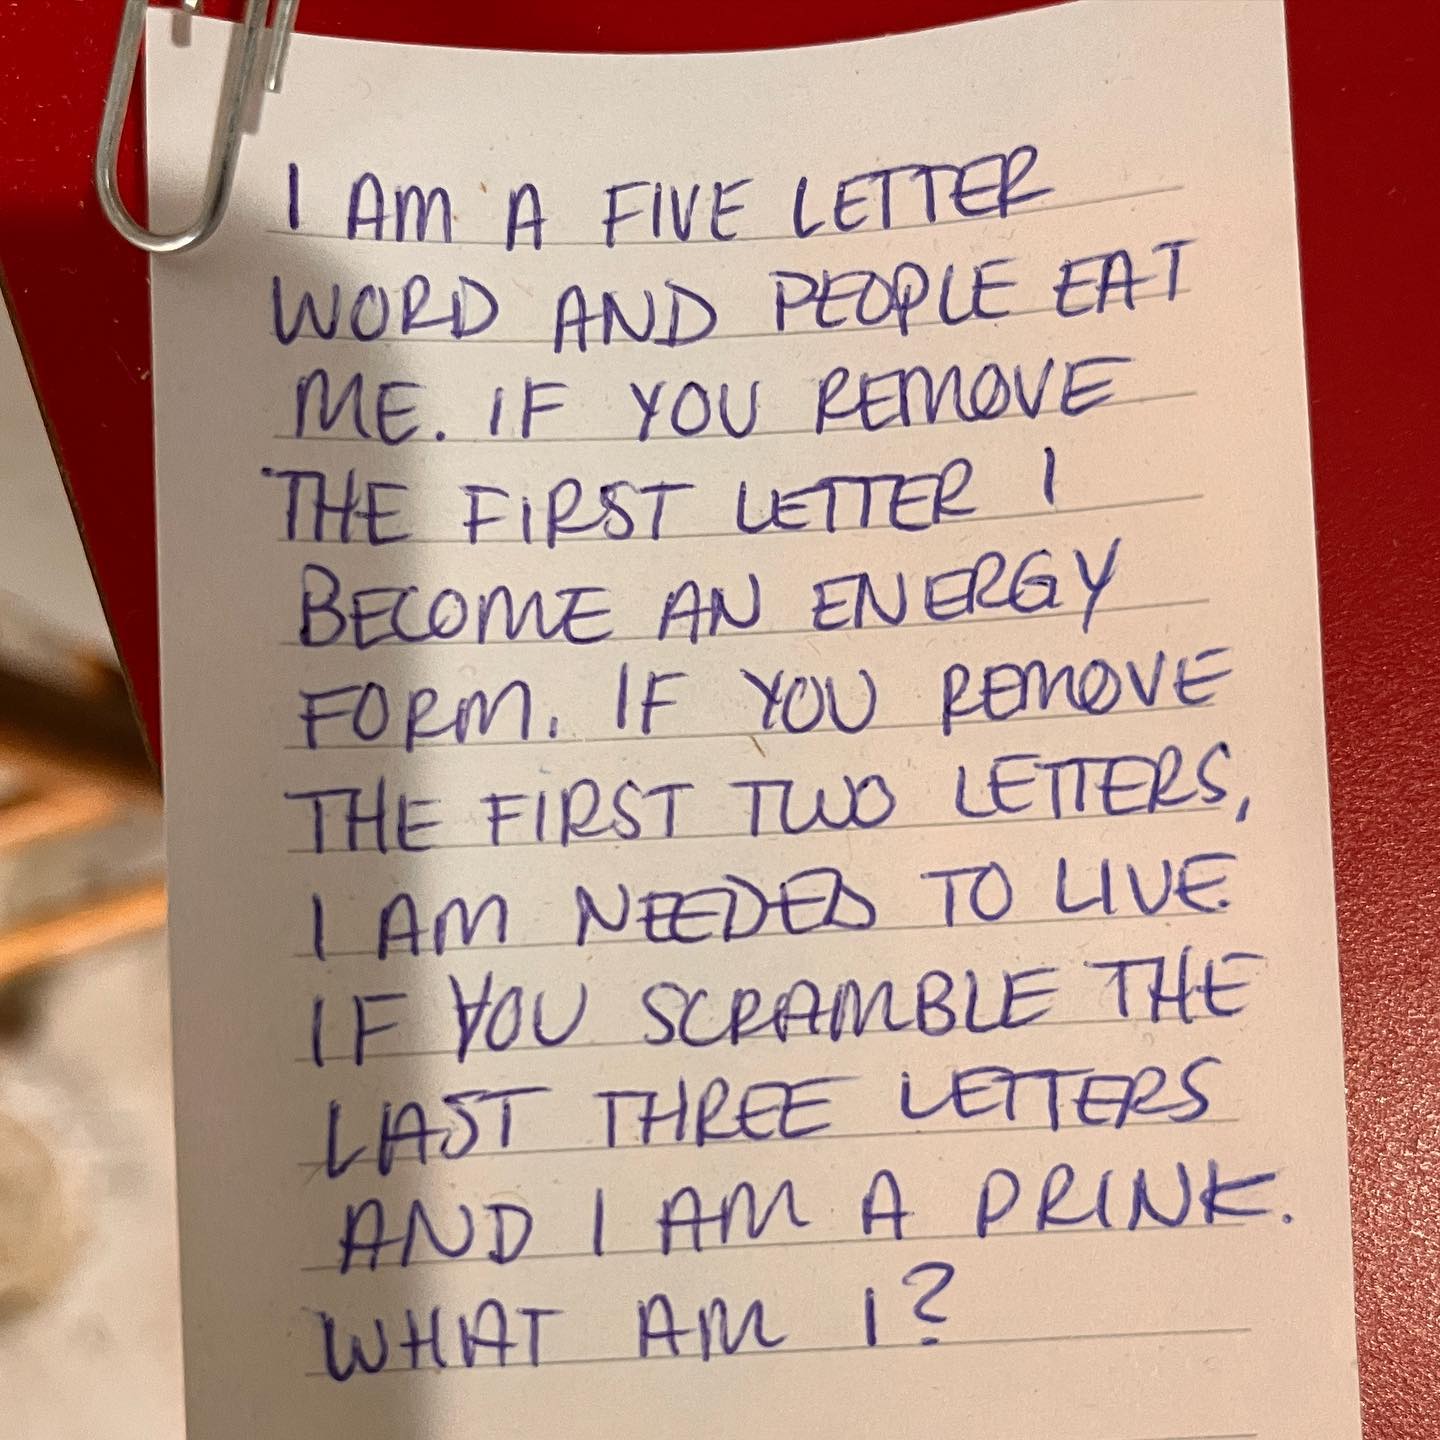 I AM A FIVE LETTER
WORD AND PEOPLE EAT
ME. IF YOU REMOVE
THE FIRST LETTER I
BECOME AN ENERGY
FORM. IF YOU REMOVE
THE FIRST TWO LETTERS,
I AM NEEDED TO LIVE.
IF YOU SCRAMBLE THE
LAST THREE LETTERS
AND I AM A DRINK.
WHAT AM I?